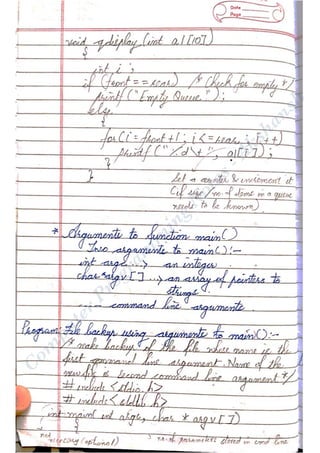 Date
Page
void qdisplay (int a1[10])
{
int i ;
if (front == rear) /* Check for empty */
printf ("Empty Queue");
else
{
for (i = front +1 ; i <= rear ; i++)
printf ("%d \t", a1[i]);
}
}
Let a counter & increment it
(if size / no. of items in a queue
needs to be known)
* Arguments to function main()
Two arguments to main() :-
int argc ...> an integer
char *argv [ ] ...> an array of pointers to
strings
command line arguments
Program: File backup using arguments to main() :-
/* make backup of the file whose name is the
first command line argument. Name of the
new file is second command line argument */
# include <stdio.h>
# include <stdlib.h>
int main( int argc, char * argv [ ])
{
(optional)
no. of parameters stored in cmd line